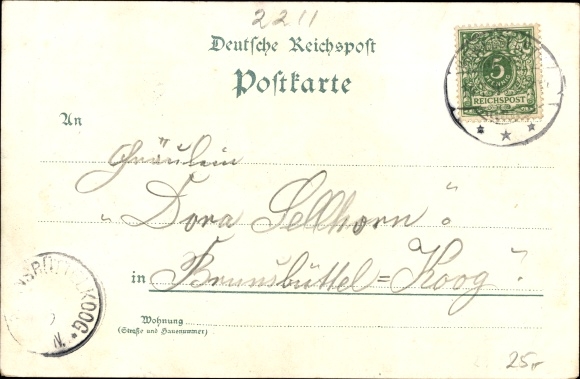 2211
Deutsche Reichspost
Postkarte
5
REICHSPOST
An
Fräulein
„Dora Sellhorn"
in Brunsbüttel=Koog".
Wohnung
(Straße und Hausnummer)
KOOG
25,-